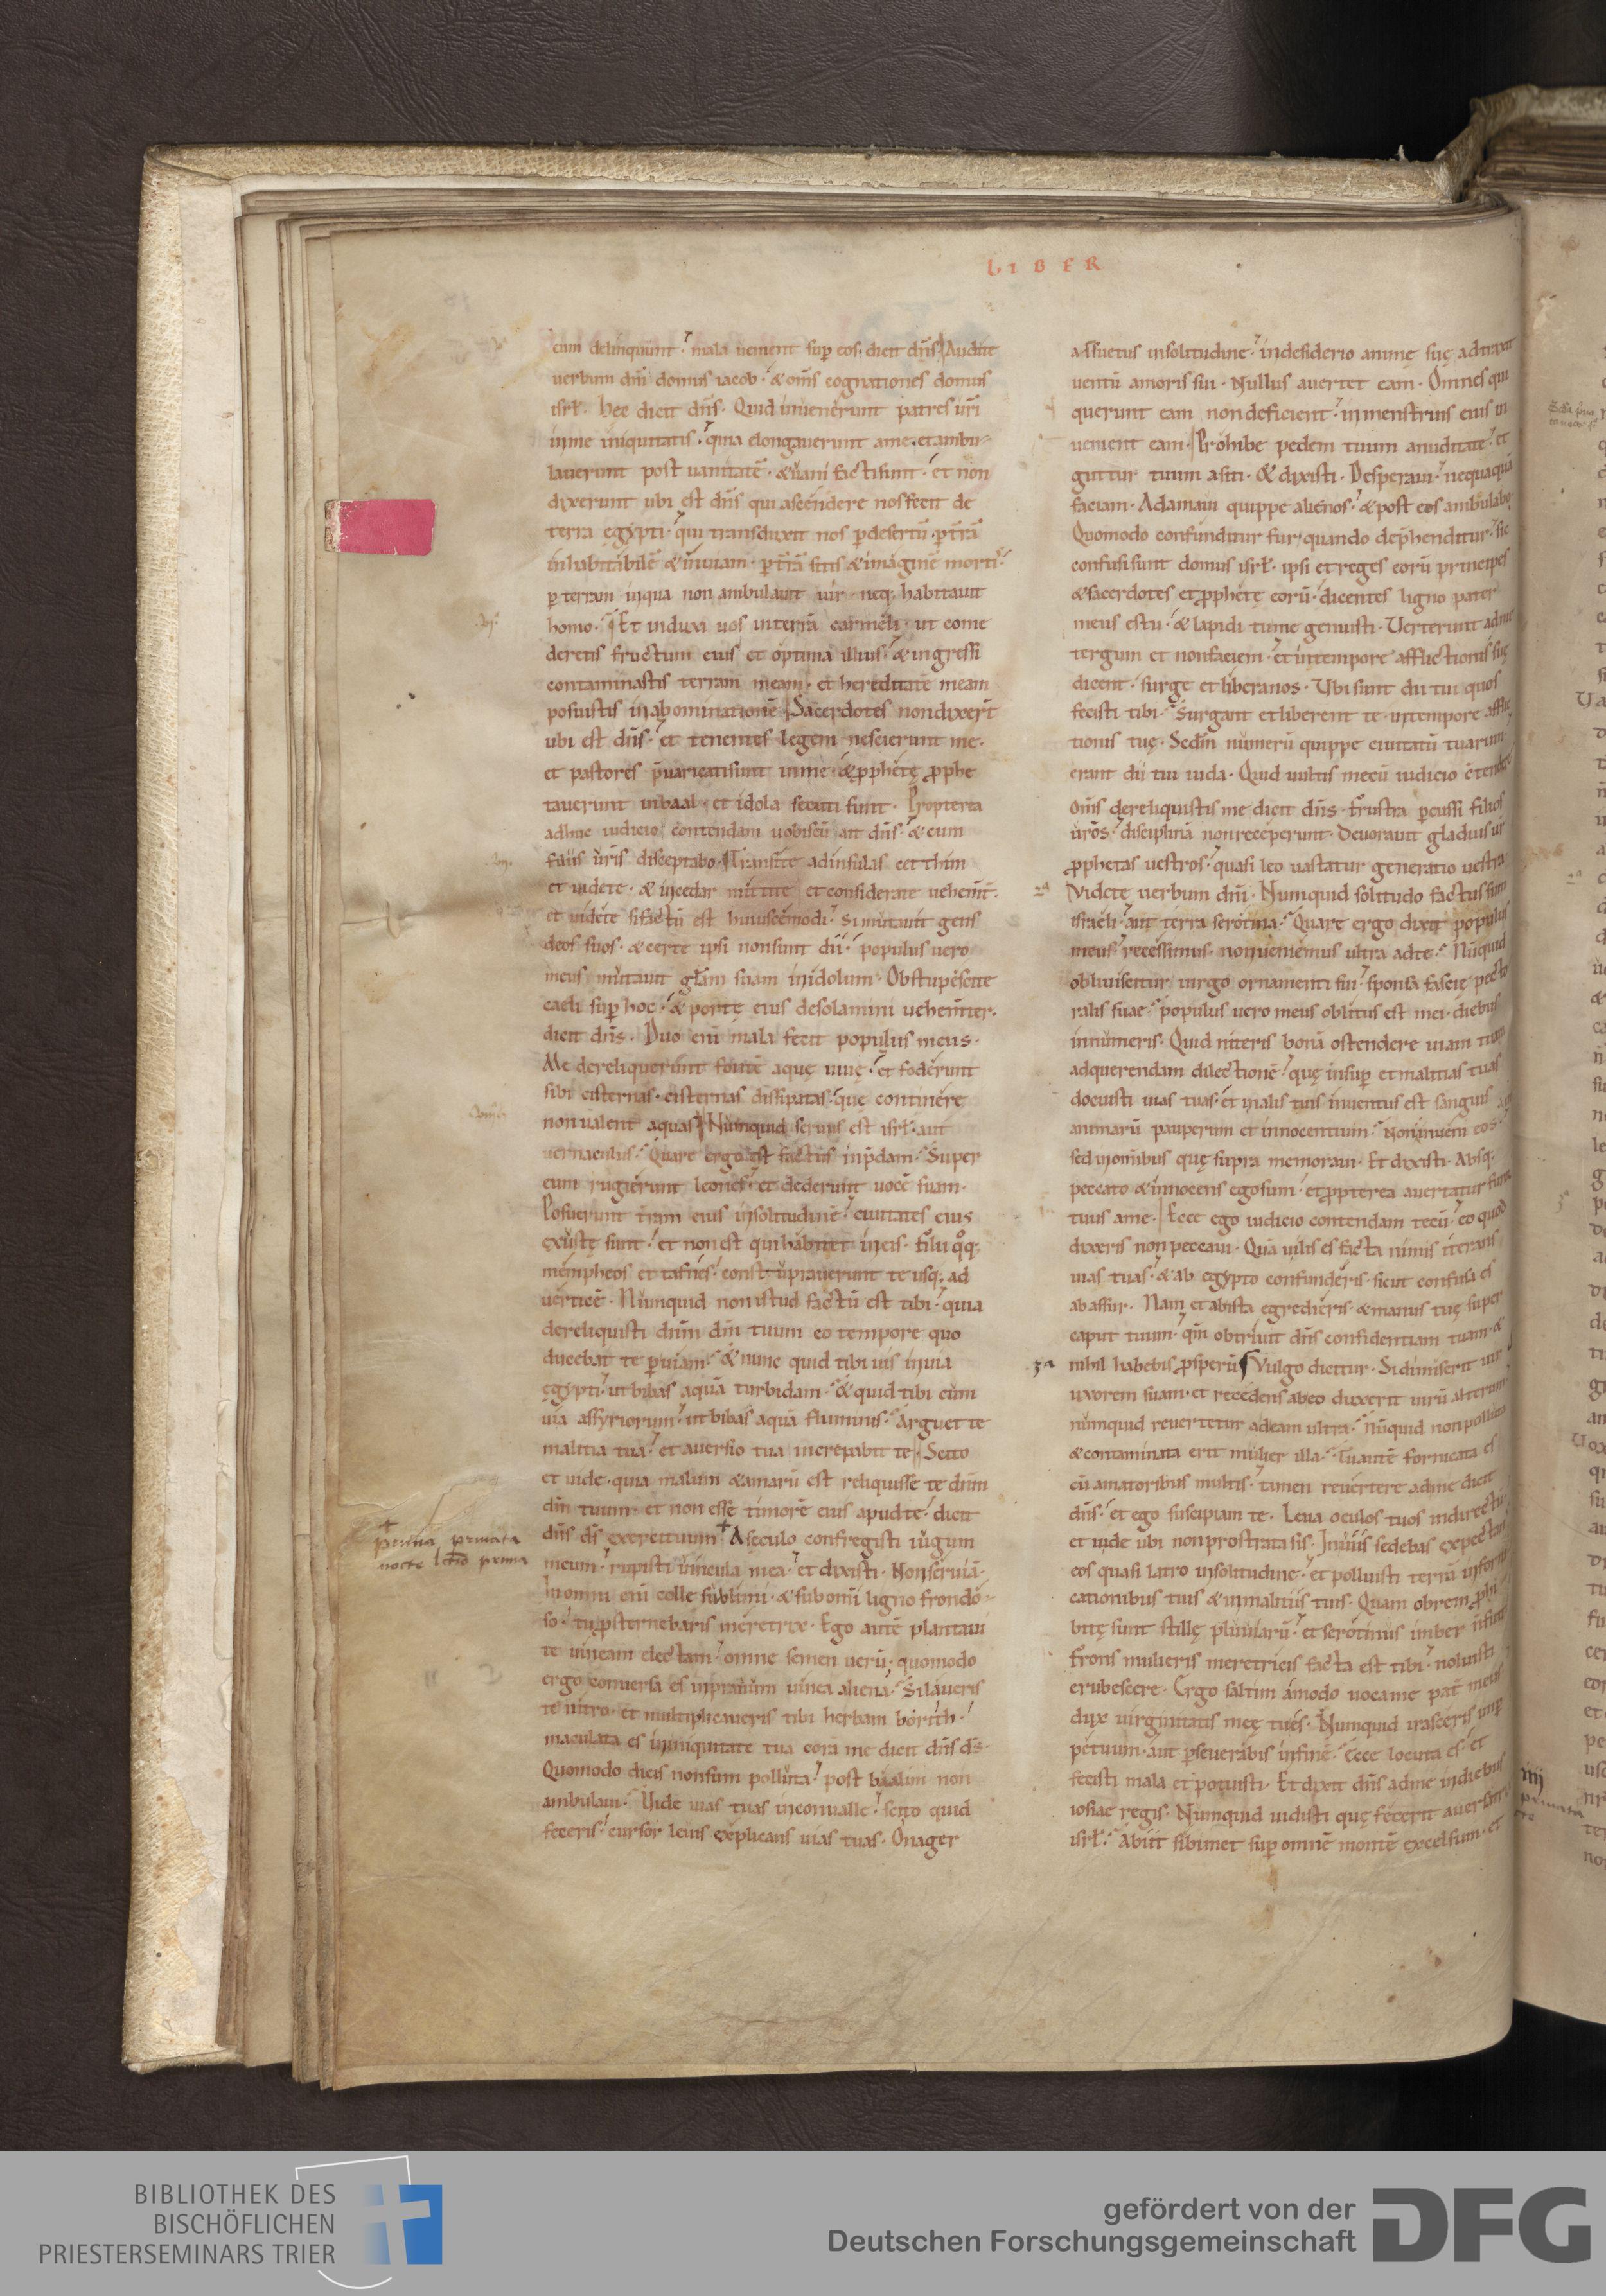 LIBER
eum delinquunt. mala uenient sup eos. dicit dns. Audite
uerbum dni domus iacob. & oms cognationes domus
isrl. hec dicit dns. Quid inuenerunt patres uri
in me iniquitatis. quia elongauerunt a me. et ambu-
lauerunt post uanitatē. & uani facti sunt. et non
dixerunt ubi est dns qui ascendere nos fecit de
terra egypti. qui transduxit nos p desertū. p trā
inhabitabilē & inuiam. p trā sitis & imaginē mortis.
p terram in qua non ambulauit uir neq. habitauit
homo. Et induxi uos in terrā carmeli. ut come
deretis fructum eius et optima illius. & ingressi
contaminastis terram meam. et hereditatē meam
posuistis in abominationē. Sacerdotes non dixert
ubi est dns. et tenentes legem nescierunt me.
et pastores puaricati sunt in me. & pphetę pphe
tauerunt in baal. et idola secuti sunt. Propterea
adhuc iudicio contendam uobiscū ait dns. & cum
filiis uris disceptabo. Transite ad insulas cetthim
et uidete. & in cedar mittite et considerate uehemt.
et uidete si factū est huiuscemodi. Si mutauit gens
deos suos. & certe ipsi non sunt dii. populus uero
meus mutauit glam suam in idolum. Obstupescite
caeli sup hoc. & portę eius desolamini uehemter.
dicit dns. Duo eni mala fecit populus meus.
Me dereliquerunt fontē aquę uiuę. et foderunt
sibi cisternas. cisternas dissipatas. quę continere
non ualent aquas. Numquid seruus est isrl. aut
uernaculus. Quare ergo est factus in pdam. Super
eum rugierunt leones. et dederunt uocē suam.
Posuerunt tram eius in solitudinē. ciuitates eius
exustę sunt. et non est qui habitet in eis. filii qq.
mempheos et tafnes. constuprauerunt te usq. ad
uerticē. Numquid non istud factū est tibi. quia
dereliquisti dnm dm tuum eo tempore quo
ducebat te p uiam. & nunc quid tibi uis in uia
egypti. ut bibas aquā turbidam. & quid tibi cum
uia assyriorum. ut bibas aquā fluminis. Arguet te
malitia tua. et auersio tua increpabit te. Scito
et uide. quia malum & amarū est reliquisse te dnm
dm tuum. et non esse timorē eius apud te. dicit
dns ds exercituum. A seculo confregisti iugum
meum. rupisti uincula mea. et dixisti. Non seruiā.
In omni eni colle sublimi. & sub omi ligno frondo-
so. tu psternebaris meretrix. Ego autē plantaui
te uineam electam. omne semen uerū. quomodo
ergo conuersa es in prauum uinea aliena. Si laueris
te nitro. et multiplicaueris tibi herbam borith.
maculata es in iniquitate tua corā me dicit dns ds.
Quomodo dicis non sum polluta. post baalim non
ambulaui. Uide uias tuas in conualle. scito quid
feceris. cursor leuis explicans uias tuas. Onager
prima priuata
nocte lectio prima
assuetus in solitudine. in desiderio animę suę adtraxit
uentū amoris sui. Nullus auertet eam. Omnes qui
querunt eam non deficient. in menstruis eius in
uenient eam. Prohibe pedem tuum a nuditate. et
guttur tuum a siti. & dixisti. Desperaui. nequaquā
faciam. Adamaui quippe alienos. & post eos ambulabo.
Quomodo confunditur fur. quando dephenditur. sic
confusi sunt domus isrl. ipsi et reges eorū principes
& sacerdotes et pphetę eorū. dicentes ligno pater
meus es tu. & lapidi tu me genuisti. Uerterunt ad me
tergum et non faciem. et in tempore afflictionis suę
dicent. surge et libera nos. Ubi sunt dii tui quos
fecisti tibi. Surgant et liberent te in tempore afflic
tionis tuę. Sedm numerū quippe ciuitatū tuarum
erant dii tui iuda. Quid uultis mecū iudicio ctendere
Oms dereliquistis me dicit dns. frustra pcussi filios
uros. disciplinā non receperunt. Deuorauit gladius ur
pphetas uestros. quasi leo uastatur generatio uestra.
2a Videte uerbum dni. Numquid solitudo factus sum
israeli. aut terra serotina. Quare ergo dixit populus
meus. recessimus. non ueniemus ultra ad te. Nūquid
obliuiscitur uirgo ornamenti sui. sponsa fascię pecto
ralis suae. populus uero meus oblitus est mei. diebus
innumeris. Quid niteris bonā ostendere uiam tuam
ad querendam dilectionē. quę insup et malitias tuas
docuisti uias tuas. et in alis tuis inuentus est sanguis
animarū pauperum et innocentium. Non inueni eos.
sed in omibus quę supra memoraui. Et dixisti. Absq.
peccato & innocens ego sum. et ppterea auertatur furor
tuus a me. Ecce ego iudicio contendam tecū. eo quod
dixeris non peccaui. Quā uilis es facta nimis iterans
uias tuas. & ab egypto confunderis. sicut confusa es
ab assur. Nam et ab ista egredieris. & manus tuę super
caput tuum. qm obtriuit dns confidentiam tuam. &
3a nihil habebis psperū. Vulgo dicitur. Si dimiserit uir
uxorem suam. et recedens ab eo duxerit uirū alterum.
numquid reuertetur ad eam ultra. Nūquid non polluta
& contaminata erit mulier illa. Tu autē fornicata es
cū amatoribus multis. tamen reuertere ad me dicit
dns. et ego suscipiam te. Leua oculos tuos in directū.
et uide ubi non prostrata sis. In uiis sedebas expectans
eos quasi latro in solitudine. et polluisti terrā in forni
cationibus tuis & in malitiis tuis. Quam obrem phi
bitę sunt stillę pluuiarū. et serotinus imber n fuit
frons mulieris meretricis facta est tibi. noluisti
erubescere. Ergo saltim amodo uoca me pat meus
dux uirginitatis meę tu es. Numquid irasceris in p
petuum. aut pseuerabis in finē. Ecce locuta es. et
fecisti mala et potuisti. Et dixit dns ad me in diebus
iosiae regis. Numquid uidisti quę fecerit auersatrix
isrl. Abiit sibimet sup omnē montē excelsum. et
BIBLIOTHEK DES
BISCHÖFLICHEN
PRIESTERSEMINARS TRIER
gefördert von der
Deutschen Forschungsgemeinschaft
DFG